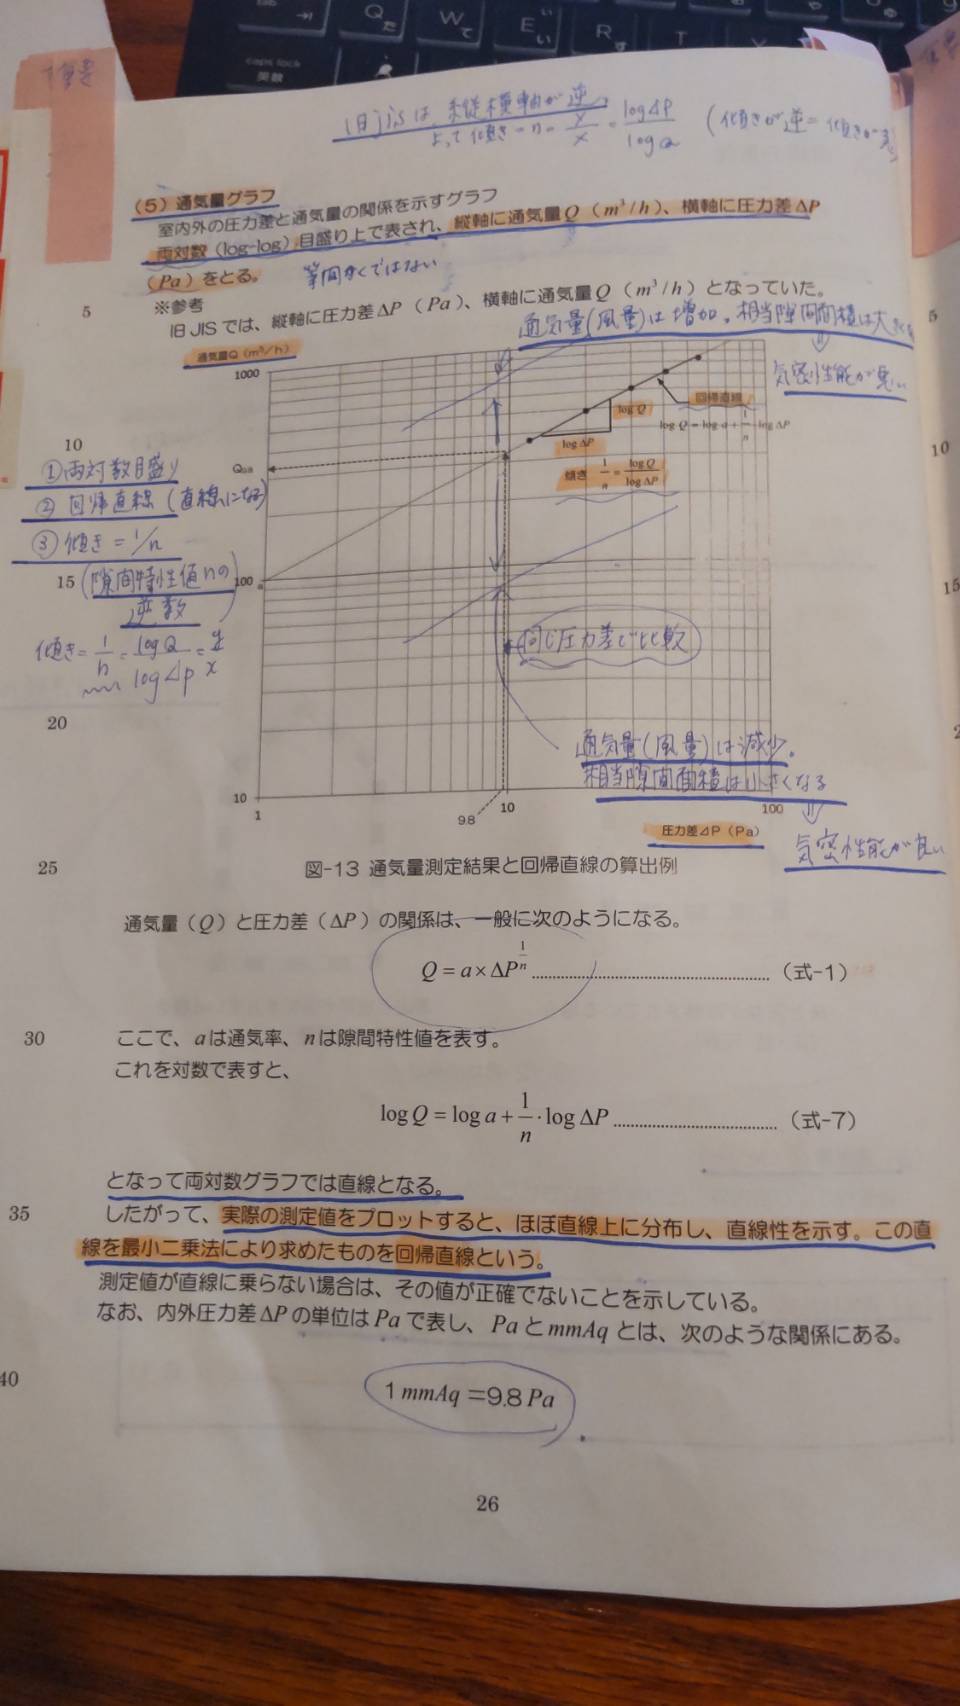 Q
た
W
て
E
い
い
R
す
T
caps lock
英数
旧jisは、縦横軸が逆
よって傾き=n= y/x = logΔP/logQ (傾きが逆=傾きが
(5)通気量グラフ
室内外の圧力差と通気量の関係を示すグラフ
両対数(log-log)目盛り上で表され、縦軸に通気量Q(m³/h)、横軸に圧力差ΔP
(Pa)をとる。
等間かくではない
※参考
5
旧JISでは、縦軸に圧力差ΔP(Pa)、横軸に通気量Q(m³/h)となっていた。
5
通気量(風量)は増加。相当隙間面積は大きく
気密性能が悪い
通気量Q(m³/h)
1000
logQ
logΔP
回帰直線
logQ=loga+1/n・logΔP
傾き 1/n=logQ/logΔP
10
10
Q9.8
①両対数目盛り
②回帰直線(直線になる)
③傾き=1/n
15
(隙間特性値nの
逆数)
100
15
傾き=1/n=logQ/logΔP=y/x
同じ圧力差で比較
20
2
通気量(風量)は減少。
相当隙間面積は小さくなる
気密性能が良い
10
1
9.8
10
100
圧力差ΔP(Pa)
25
図-13 通気量測定結果と回帰直線の算出例
通気量(Q)と圧力差(ΔP)の関係は、一般に次のようになる。
Q=a×ΔP^(1/n)........................(式-1)
30
ここで、aは通気率、nは隙間特性値を表す。
これを対数で表すと、
logQ=loga+1/n・logΔP........................(式-7)
となって両対数グラフでは直線となる。
35
したがって、実際の測定値をプロットすると、ほぼ直線上に分布し、直線性を示す。この直
線を最小二乗法により求めたものを回帰直線という。
測定値が直線に乗らない場合は、その値が正確でないことを示している。
なお、内外圧力差ΔPの単位はPaで表し、PaとmmAqとは、次のような関係にある。
40
1mmAq=9.8Pa
26